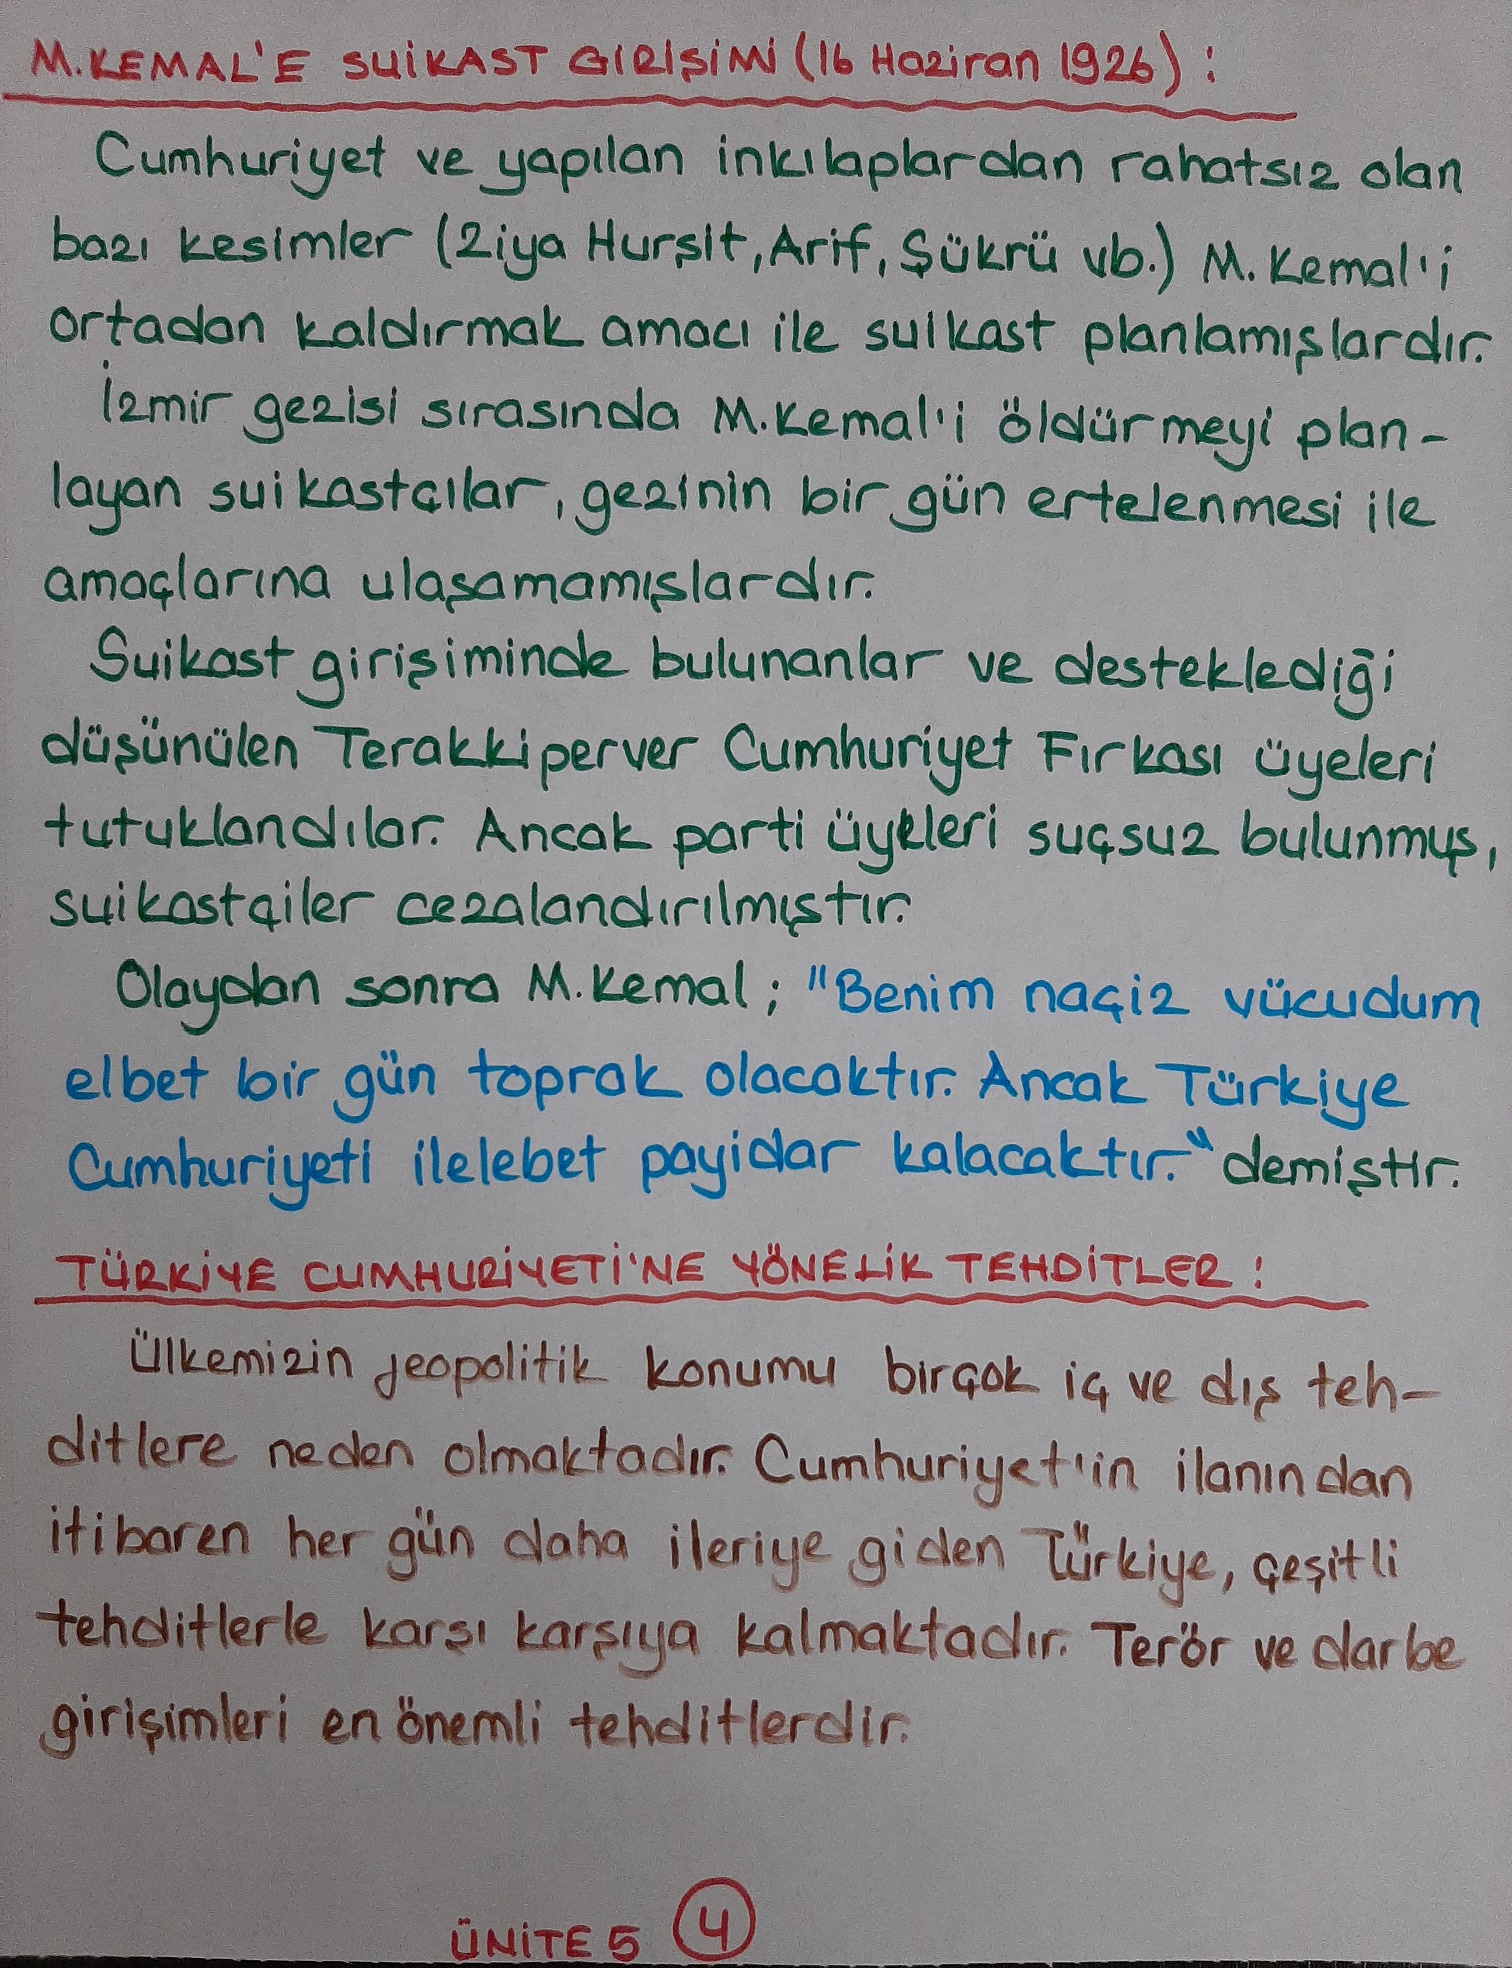 M.KEMAL'E SUİKAST GIRIŞİMİ (16 Haziran 1926) :
Cumhuriyet ve yapılan inkılaplardan rahatsız olan
bazı kesimler (Ziya Hurşit, Arif, Şükrü vb.) M. Kemal'i
ortadan kaldırmak amacı ile suikast planlamışlardır.
İzmir gezisi sırasında M.Kemal'i öldürmeyi plan-
layan suikastçılar, gezinin bir gün ertelenmesi ile
amaçlarına ulaşamamışlardır.
Suikast girişiminde bulunanlar ve desteklediği
düşünülen Terakkiperver Cumhuriyet Fırkası üyeleri
tutuklandılar. Ancak parti üyeleri suçsuz bulunmuş,
suikastçiler cezalandırılmıştır.
Olaydan sonra M.Kemal ; "Benim naçiz vücudum
elbet bir gün toprak olacaktır. Ancak Türkiye
Cumhuriyeti ilelebet payidar kalacaktır." demiştir.
TÜRKİYE CUMHURİYETİ'NE YÖNELİK TEHDİTLER :
Ülkemizin jeopolitik konumu birçok iç ve dış teh-
ditlere neden olmaktadır. Cumhuriyet'in ilanından
itibaren her gün daha ileriye giden Türkiye, çeşitli
tehditlerle karşı karşıya kalmaktadır. Terör ve darbe
girişimleri en önemli tehditlerdir.
ÜNİTE 5 4